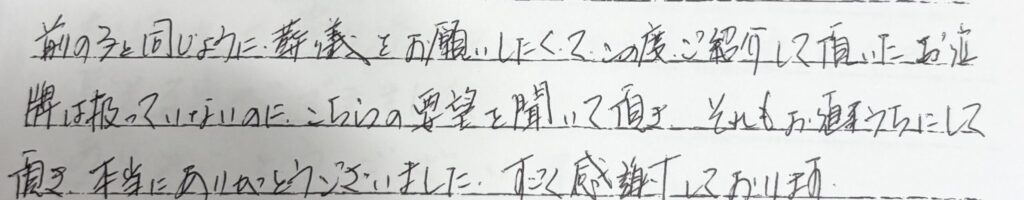 前の子と同じように、葬儀をお願いしたくて、この度ご紹介して頂いた お位
牌は扱っていないのに、こちらの要望を聞いて頂き、それもお値うちにして
頂き、本当にありがとうございました。すごく感謝しております。